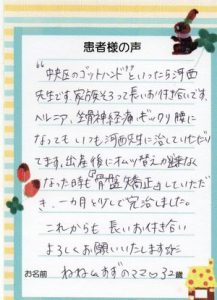 患者様の声
“中央区のゴットハンド”といったら河西
先生です。家族そろって長いお付き合いです。
ヘルニア、坐骨神経痛、ギックリ腰に
なっても いつも河西先生に治していただい
てます。出産後にオムツ替えが
なった時も『骨盤矯正』していただ
き、一カ月と少しで完治しました。
これからも 長いお付き合い
よろしくお願いいたします☆
お名前 ねねのママ♡32歳